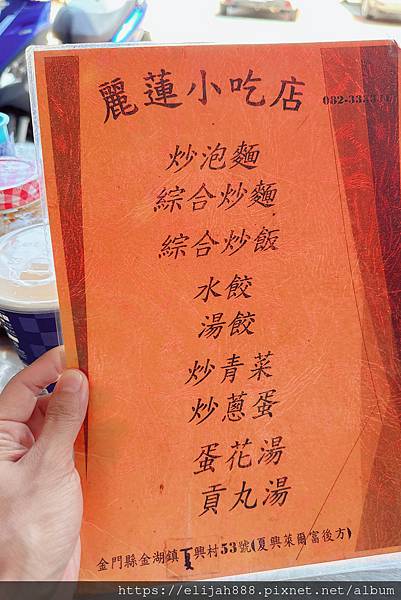 麗蓮小吃店
炒泡麵
綜合炒麵
綜合炒飯
水餃
湯餃
炒青菜
炒蔥蛋
蛋花湯
貢丸湯
金門縣金湖鎮夏興村53號(夏興萊爾富後方)
https://elijah888.pixnet.net/album